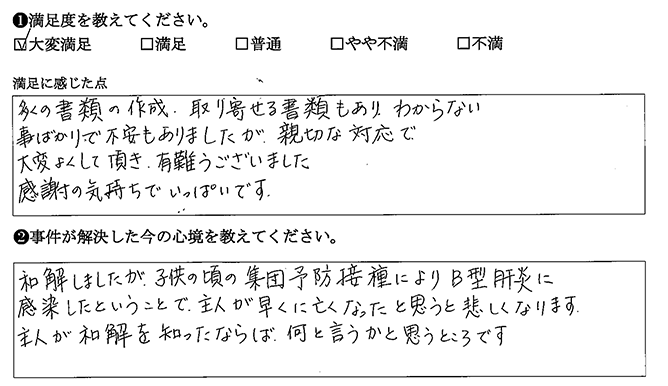 ❶満足度を教えてください。
☑大変満足 □満足 □普通 □やや不満 □不満
満足に感じた点
多くの書類の作成、取り寄せる書類もあり、わからない
事ばかりで不安もありましたが、親切な対応で
大変よくして頂き、有難うございました
感謝の気持ちでいっぱいです。
❷事件が解決した今の心境を教えてください。
和解しましたが、子供の頃の集団予防接種によりB型肝炎に
感染したということで、主人が早くに亡くなったと思うと悲しくなります。
主人が和解を知ったならば、何と言うかと思うところです